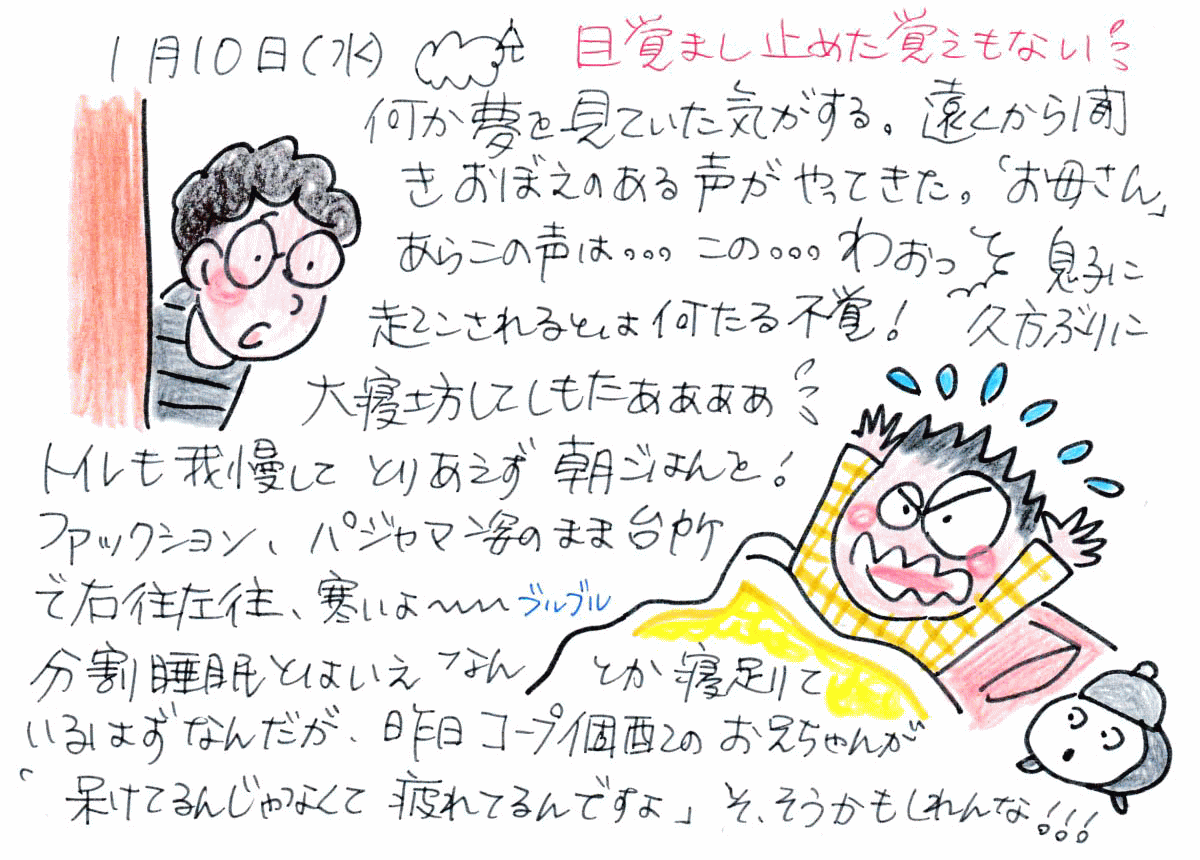 1月10日(水)
目覚まし止めた覚えもない!!
何か夢を見ていた気がする。遠くから聞
きおぼえのある声がやってきた。「お母さん」
あらこの声は。。。この。。。わおっ 息子に
起こされるとは何たる不覚! 久方ぶりに
大寝坊してしもたああああ!!
トイレも我慢してとりあえず朝ごはんと!
ファックション、パジャマン姿のまま台所
で右往左往、寒いよ〜〜〜ブルブル
分割睡眠とはいえなんとか寝足りて
いるはずなんだが、昨日コープ個配のお兄ちゃんが
「呆けてるんじゃなくて疲れてるんですよ」そ、そうかもしれんな!!!